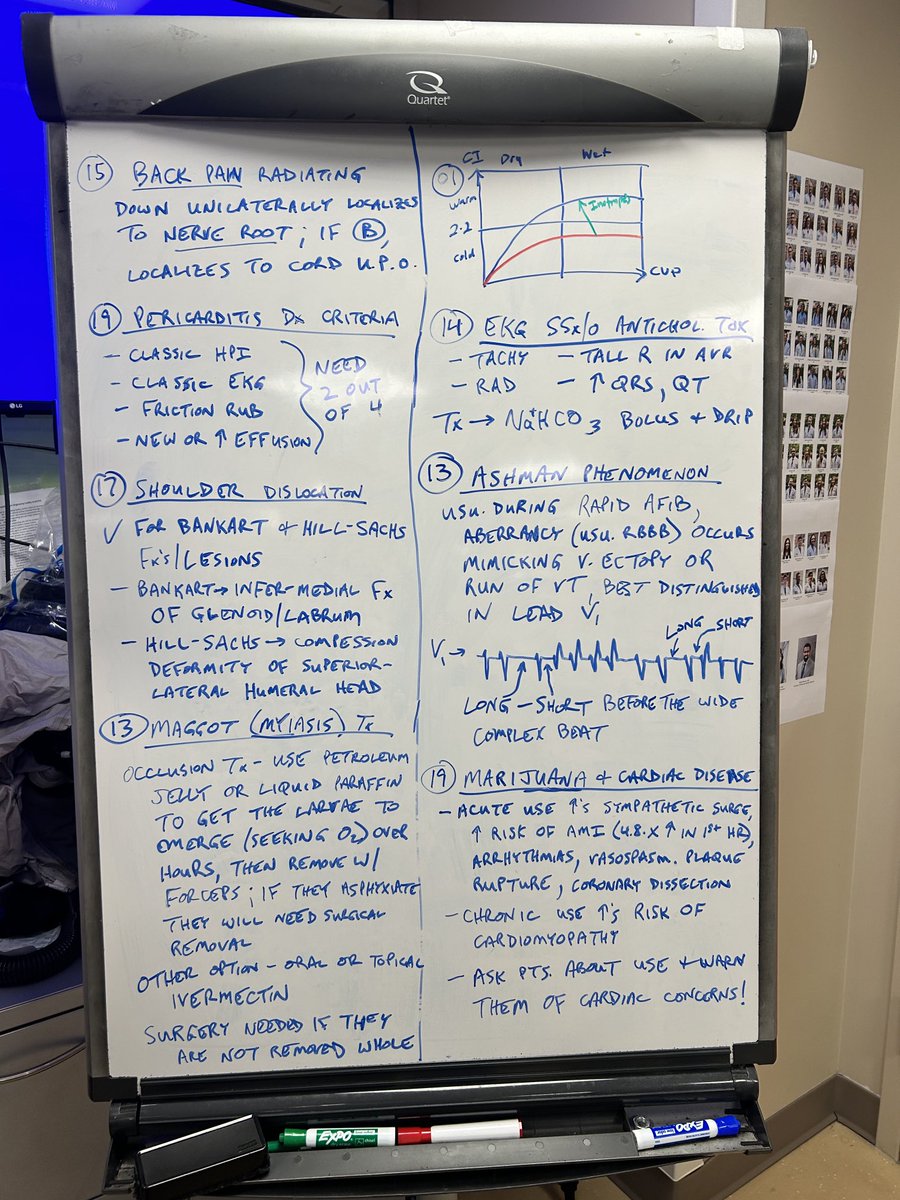 Quartet
15 BACK PAIN RADIATING
DOWN UNILATERALLY LOCALIZES
TO NERVE ROOT; IF B,
LOCALIZES TO CORD U.P.O.
19 PERICARDITIS Dx CRITERIA
- CLASSIC HPI
- CLASSIC EKG
- FRICTION RUB
- NEW OR ↑ EFFUSION
NEED
2 OUT
OF 4
17 SHOULDER DISLOCATION
✓ FOR BANKART + HILL-SACHS
Fx's/LESIONS
- BANKART → INFER-MEDIAL Fx
OF GLENOID/LABRUM
- HILL-SACHS → COMPESSION
DEFORMITY OF SUPERIOR-
LATERAL HUMERAL HEAD
13 MAGGOT (MYIASIS) Tx
OCCLUSION Tx - USE PETROLEUM
JELLY OR LIQUID PARAFFIN
TO GET THE LARVAE TO
EMERGE (SEEKING O2) OVER
HOURS, THEN REMOVE W/
FORCEPS; IF THEY ASPHYXIATE
THEY WILL NEED SURGICAL
REMOVAL
OTHER OPTION - ORAL OR TOPICAL
IVERMECTIN
SURGERY NEEDED IF THEY
ARE NOT REMOVED WHOLE
CI Dry Wet
Warm
2.2
cold
CVP
14 EKG SSx/o ANTICHOL. TOX
- TACHY - TALL R IN AVR
- RAD - ↑ QRS, QT
Tx → Na+HCO3 BOLUS + DRIP
13 ASHMAN PHENOMENON
USU. DURING RAPID AFIB,
ABERRANCY (USU. RBBB) OCCURS
MIMICKING V. ECTOPY OR
RUN OF VT, BEST DISTINGUISHED
IN LEAD V1
LONG SHORT
V1 →
LONG - SHORT BEFORE THE WIDE
COMPLEX BEAT
19 MARIJUANA + CARDIAC DISEASE
- ACUTE USE ↑'S SYMPATHETIC SURGE,
↑ RISK OF AMI (4.8 X ↑ IN 1ST HR),
ARRHYTHMIAS, VASOSPASM. PLAQUE
RUPTURE, CORONARY DISSECTION
- CHRONIC USE ↑'S RISK OF
CARDIOMYOPATHY
- ASK PTS. ABOUT USE + WARN
THEM OF CARDIAC CONCERNS!
LG
EXPO
EXPO